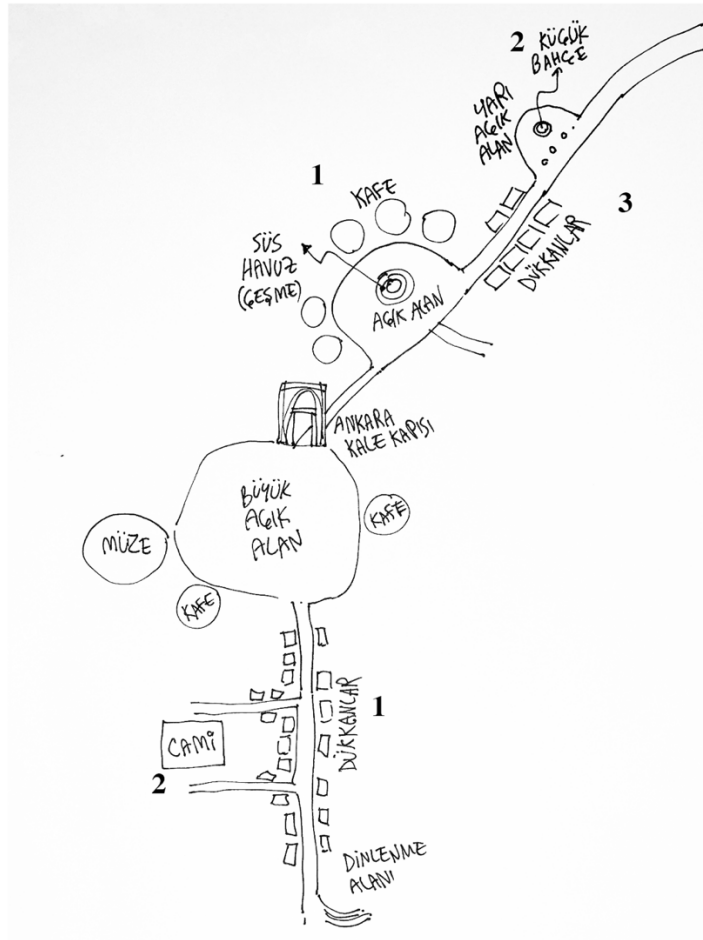 2
KÜÇÜK
BAHÇE
YARI
AÇIK
ALAN
1
KAFE
3
DÜKKANLAR
SÜS
HAVUZ
(ÇEŞME)
AÇIK ALAN
ANKARA
KALE KAPISI
BÜYÜK
AÇIK
ALAN
KAFE
MÜZE
KAFE
1
DÜKKANLAR
CAMİ
2
DİNLENME
ALANI